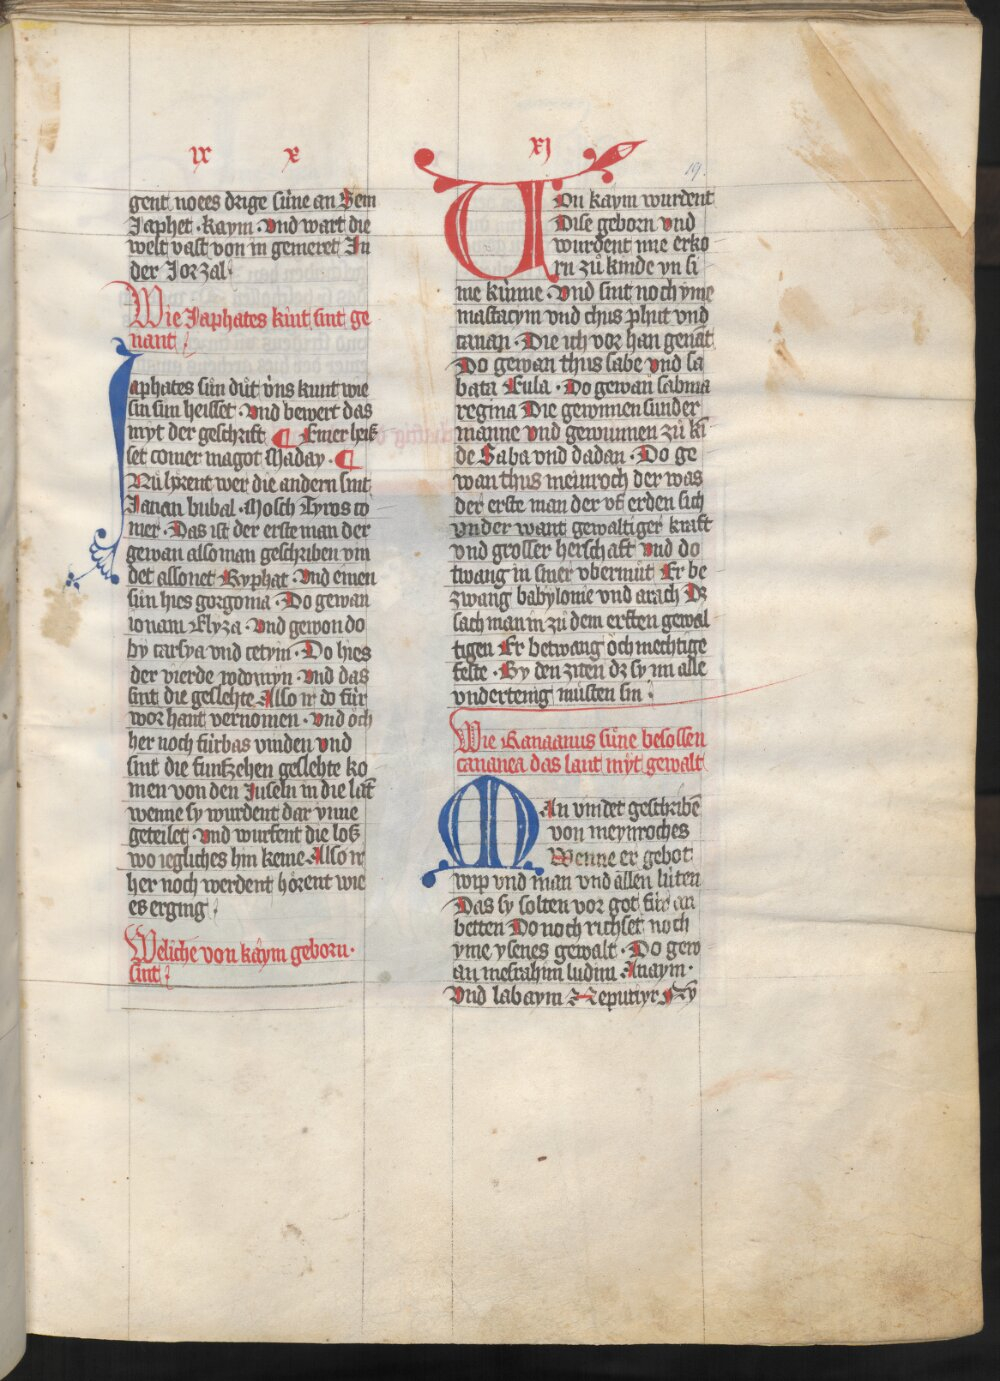 ix x
gent noees drige süne an Sem
Japhet · kaym · Vnd wart die
welt vast von in gemeret In
der Jorzal
Wie Japhates kint sint ge
nant
Japhates sün düt vns kunt wie
sin sun heisset · Vnd bewert das
myt der geschrift ¶ Einer heis
set comer magot Maday · ¶
Nü hörent wer die andern sint
Janan bubal · Mosch Tyros co
mer · Das ist der erste man der
gewan also man geschriben vin
det assonet Ryphat · Vnd einen
sün hies gorgoma · Do gewan
ionam Elyza · Vnd gewon do
by tarsya vnd cetym · Do hies
der vierde
sint die geslehte Also ir do für
wor hant vernomen · vnd öch
her noch fürbas vinden vnd
sint die funfzehen geslehte ko
men von den Juseln in die lät
wenne sy wurdent dar ynne
geteilet · vnd wurfent die los
wo iegliches hin keme Also ir
her noch werdent hörent wie
es erging
Weliche von kaym geborn ·
sint
xj
191.
Von kaym wurdent
Dise geborn vnd
wurdent nie erko
rn zů kinde yn si
me künne · Vnd sint noch yme
mastacym vnd chus phut vnd
canan · Die ich vor han genāt
Do gewan thus sabe vnd sa
bata Eula · Do gewan sabma
regina Die gewinnen sunder
manne vnd gewunnen zů ki
de Saba vnd dadan · Do ge
wan thus meinroch der was
der erste man der vf erden sich
vnder want gewaltiger kraft
vnd grosser herschaft vnd do
twang in siner vbermüt Er be
zwang babylonie vnd arach Dz
sach man in zü dem ersten gewal
tigen Er betwang öch mechtige
feste · By den ziten dz sy im alle
vndertenig müsten sin
Wie Kanaanus süne besossen
cananea das lant myt gewalt
Man vindet geschribē
von meynroches
Wenne er gebot
wip vnd man vnd allen lüten
Das sy solten vor got für an
betten Do noch richset noch
yme ysenes gewalt · Do gew
an mesrahim ludim Anaym ·
Vnd labaym